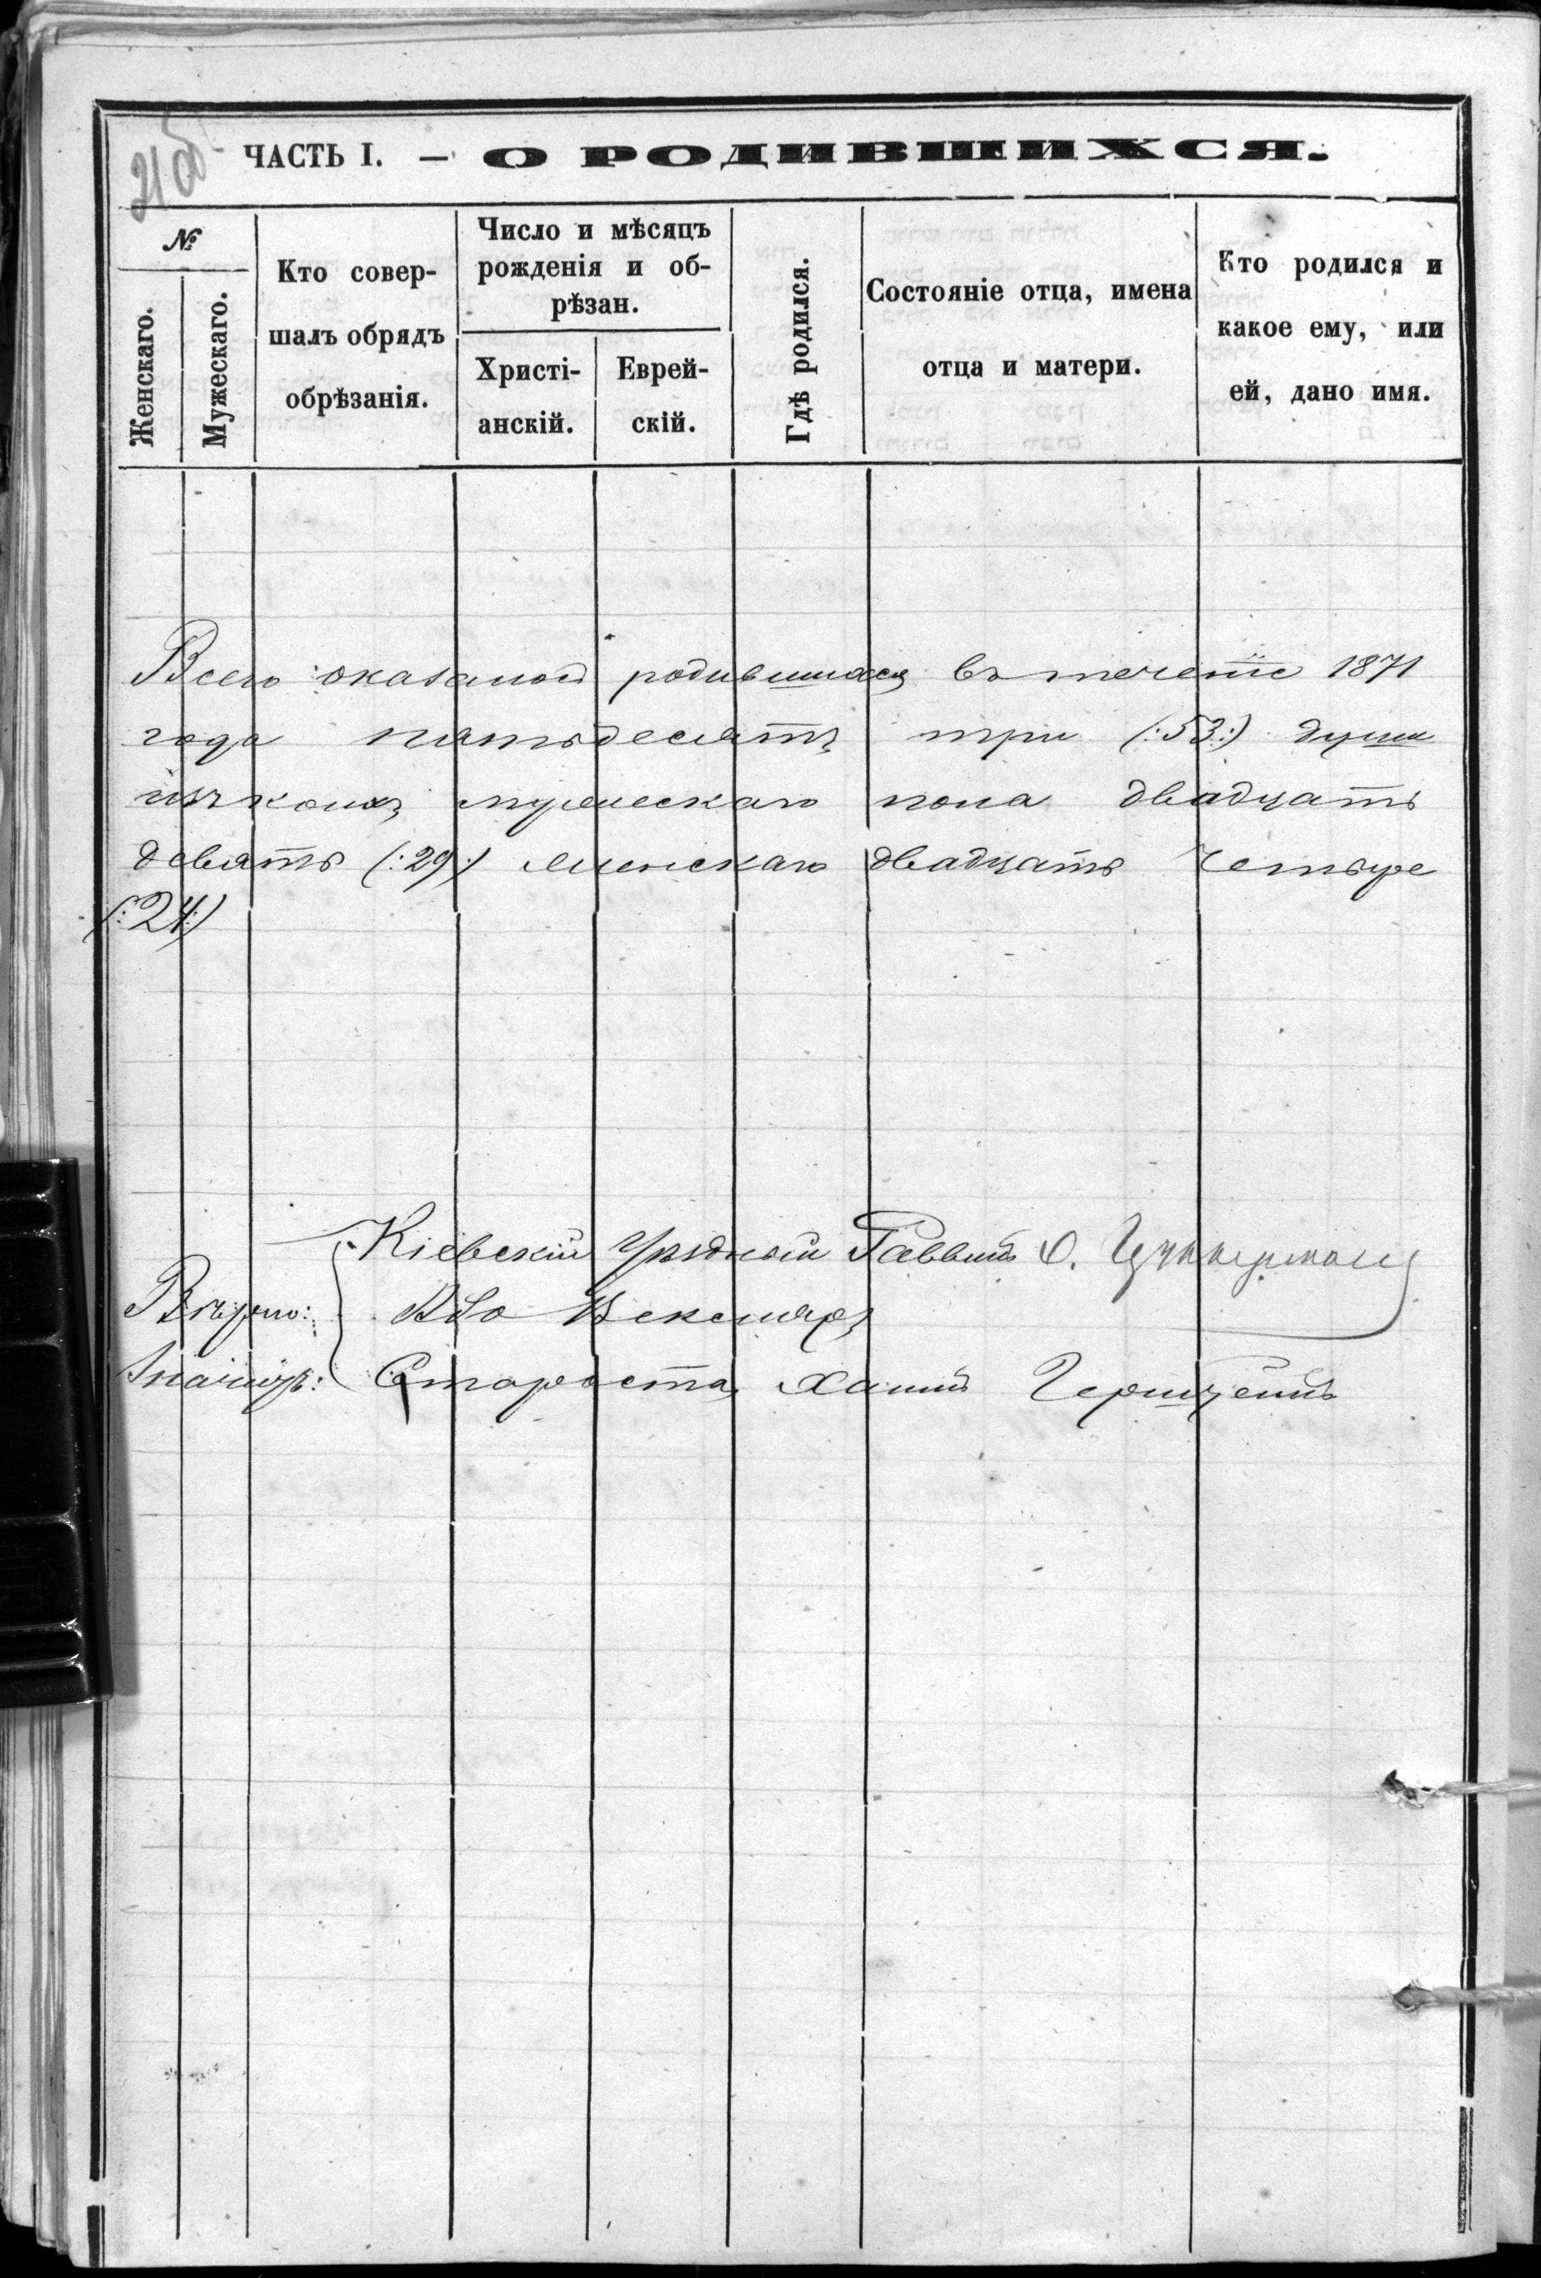 21 об
ЧАСТЬ I. — О РОДИВШИХСЯ.
№
Женскаго.
Мужескаго.
Кто совер-
шалъ обрядъ
обрѣзанія.
Число и мѣсяцъ
рожденія и об-
рѣзан.
Христі-
анскій.
Еврей-
скій.
Гдѣ родился.
Состояніе отца, имена
отца и матери.
Кто родился и
какое ему, или
ей, дано имя.
Всего оказалось родившихся въ течете 1871
года пятьдесятъ три (:53:) души
изъ коихъ мужескаго пола двадцать
девять (:29:) женскаго двадцать четыре
(:24:)
Кіевскій Уѣздный Раввинъ Цуккерманъ
Вѣрно:
Староста Хаимъ